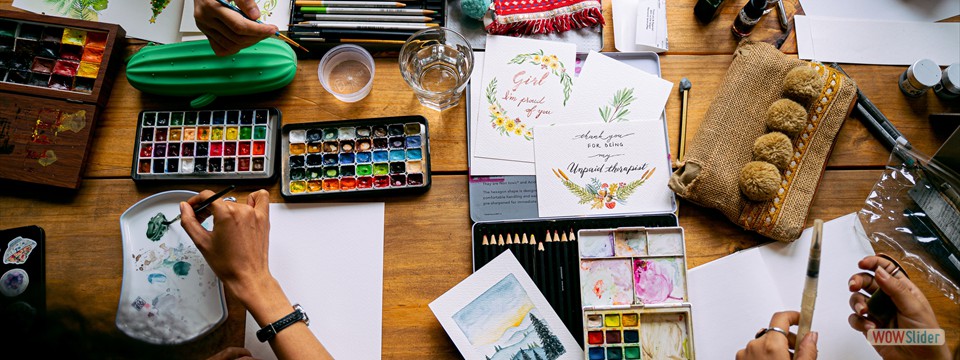 Girl
I'm proud of
you
thank you
FOR BEING
my
Unpaid therapist
WOWSlider